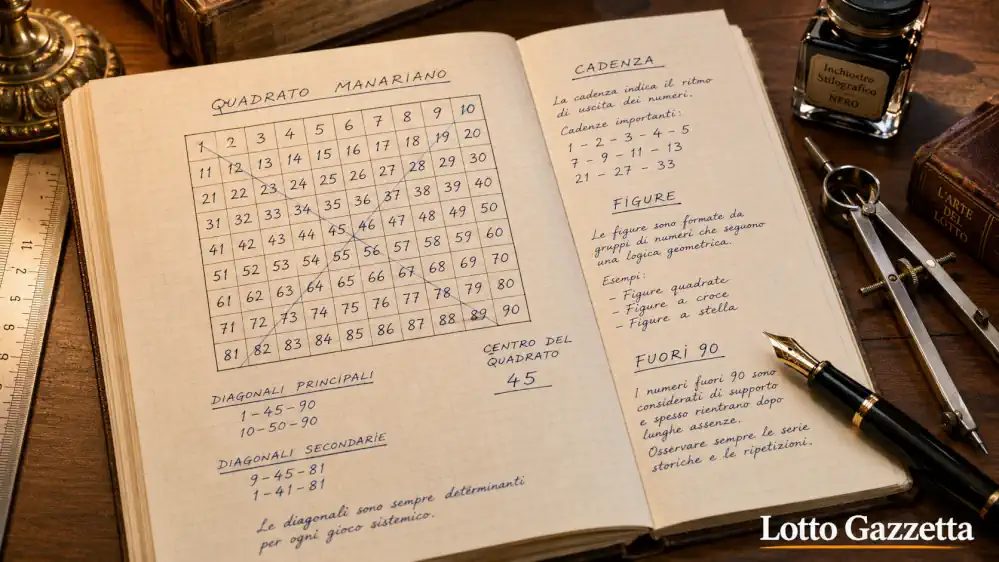 QUADRATO MANARIANO
1 2 3 4 5 6 7 8 9 10
11 12 13 14 15 16 17 18 19 20
21 22 23 24 25 26 27 28 29 30
31 32 33 34 35 36 37 38 39 40
41 42 43 44 45 46 47 48 49 50
51 52 53 54 55 56 57 58 59 60
61 62 63 64 65 66 67 68 69 70
71 72 73 74 75 76 77 78 79 80
81 82 83 84 85 86 87 88 89 90
DIAGONALI PRINCIPALI
1 - 45 - 90
10 - 50 - 90
DIAGONALI SECONDARIE
9 - 45 - 81
1 - 41 - 81
CENTRO DEL
QUADRATO
45
Le diagonali sono sempre determinanti
per ogni gioco sistemico.
CADENZA
La cadenza indica il ritmo
di uscita dei numeri.
Cadenze importanti:
1 - 2 - 3 - 4 - 5
7 - 9 - 11 - 13
21 - 27 - 33
FIGURE
Le figure sono formate da
gruppi di numeri che seguono
una logica geometrica.
Esempi:
- Figure quadrate
- Figure a croce
- Figure a stella
FUORI 90
I numeri fuori 90 sono
considerati di supporto
e spesso rientrano dopo
lunghe assenze.
Osservare sempre le serie
storiche e le ripetizioni.
Inchiostro
Stilografico
NERO
L'ARTE
DEL
LOTTO
Lotto Gazzetta